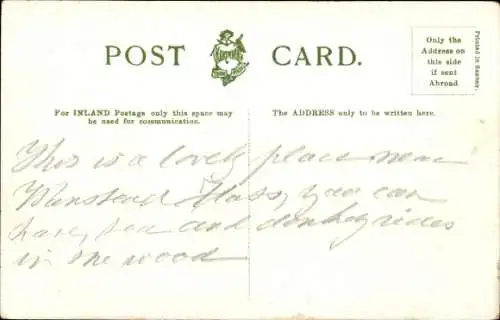 POST CARD.
Only the
Address on
this side
if sent
Abroad
Printed in Saxony.
For INLAND Postage only this space may
be used for communication.
The ADDRESS only to be written here.
This is a lovely place near
Wanstead Flats, you can
have, tea and donkey rides
in the wood